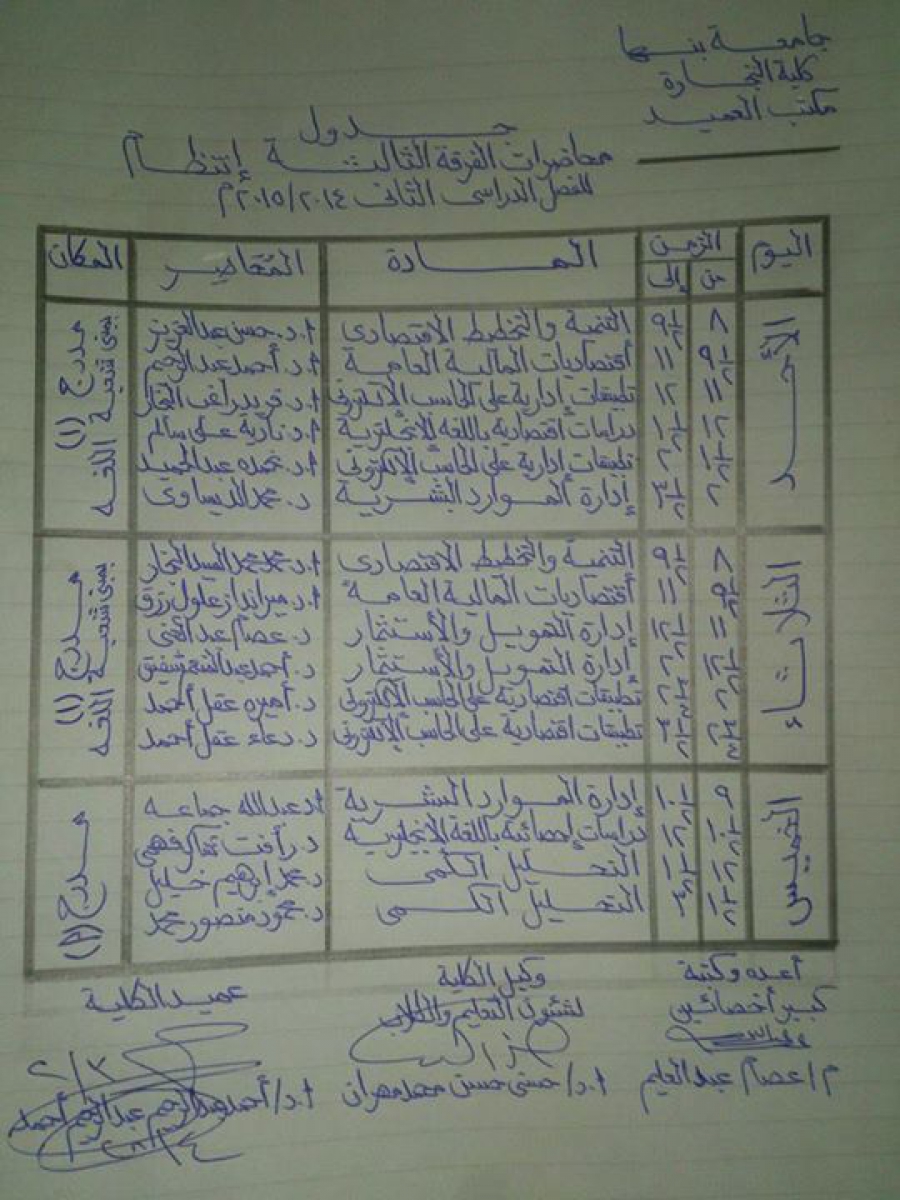 جامعة بنها
كلية التجارة
مكتب العميد
جدول
محاضرات الفرقة الثالثة إنتظام
للفصل الدراسى الثانى ٢٠١٤/٢٠١٥م
اليوم الزمن المــادة المحاضر المكان
من إلى
الأحد
٨ ٩½ التنمية والتخطيط الاقتصادى أ.د. حسن عبدالعزيز مدرج (١) بمبنى شعبة اللغه
٩½ ١١ أقتصاديات المالية العامة أ.د. أحمد عبدالرحيم
١١ ١٢ تطبيقات إدارية على الحاسب الالكترونى أ.د. فريد راغب النجار
١٢ ١½ دراسات اقتصادية باللغة الانجلزية أ.د. نادية على سالم
١½ ٢ تطبيقات إدارية على الحاسب الإلكترونى أ.د. حمده عبدالحميد
٢ ٣½ إدارة الموارد البشرية د. محمد الديساوى
الثلاثاء
٨ ٩½ التنمية والتخطيط الاقتصادى أ.د. محمد محمد السيد النجار مدرج (١) بمبنى شعبة اللغه
٩½ ١١ أقتصاديات المالية العامة أ.د. ميراندا زغلول رزق
١١ ١٢½ إدارة التمويل والأستثمار د. عصام عبدالغنى
١٢½ ٢ إدارة التمويل والأستثمار د. أحمد عبدالمنعم شفيق
٢ ٢¾ تطبيقات اقتصادية على الحاسب الالكترونى د. أميره عقل أحمد
٢¾ ٣½ تطبيقات اقتصادية على الحاسب الإلكترونى د. دعاء عقل أحمد
الخميس
٩ ١٠½ إدارة الموارد البشرية أ.د عبدالله جماعه مدرج (٨)
١٠½ ١٢ دراسات إحصائية باللغة الإنجليزية د. رأفت شاكر فهمى
١٢ ١½ التحليل الكمى د. محمد إبراهيم خليل
١½ ٣ التحليل الكمى د. محمود منصور محمد
أعده وكتبة وكيل الكلية عميد الكلية
كبير أخصائين لشئون التعليم والطلاب
م/ عصام عبدالعليم أ.د/ حسنى حسن مهران أ.د/ أحمد عبدالرحيم عبدالرحيم أحمد